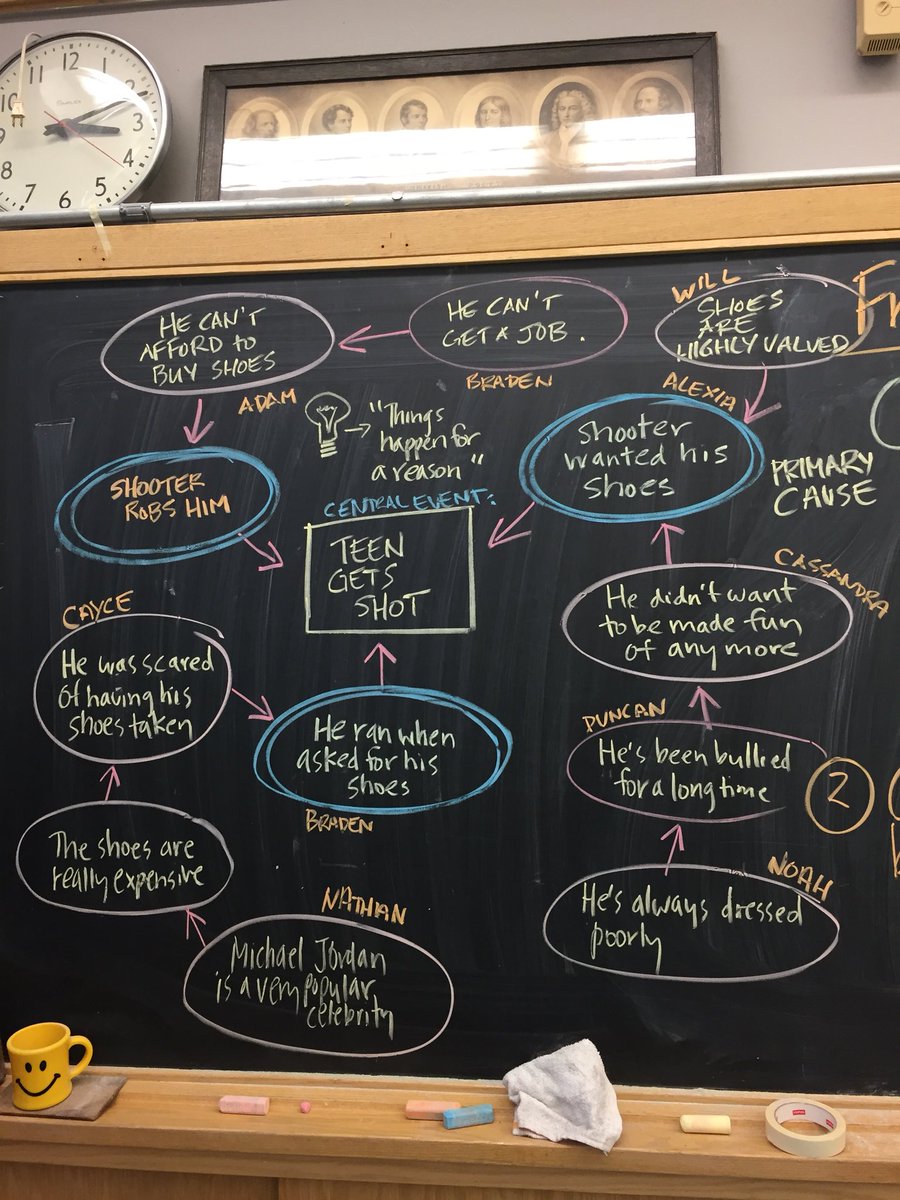 11 12 1
10 2
9 3
8 4
7 6 5
HE CAN'T
AFFORD TO
BUY SHOES
ADAM
HE CAN'T
GET A JOB.
BRADEN
WILL
SHOES
ARE
HIGHLY VALUED
"Things
happen for
a reason"
ALEXIA
Shooter
wanted his
shoes
PRIMARY
CAUSE
SHOOTER
ROBS HIM
CENTRAL EVENT:
TEEN
GETS
SHOT
CASSANDRA
He didn't want
to be made fun
of any more
CAYCE
He was scared
of having his
shoes taken
He ran when
asked for his
shoes
BRADEN
DUNCAN
He's been bullied
for a long time
2
The shoes are
really expensive
NOAH
He's always dressed
poorly
NATHAN
Michael Jordan
is a very popular
celebrity